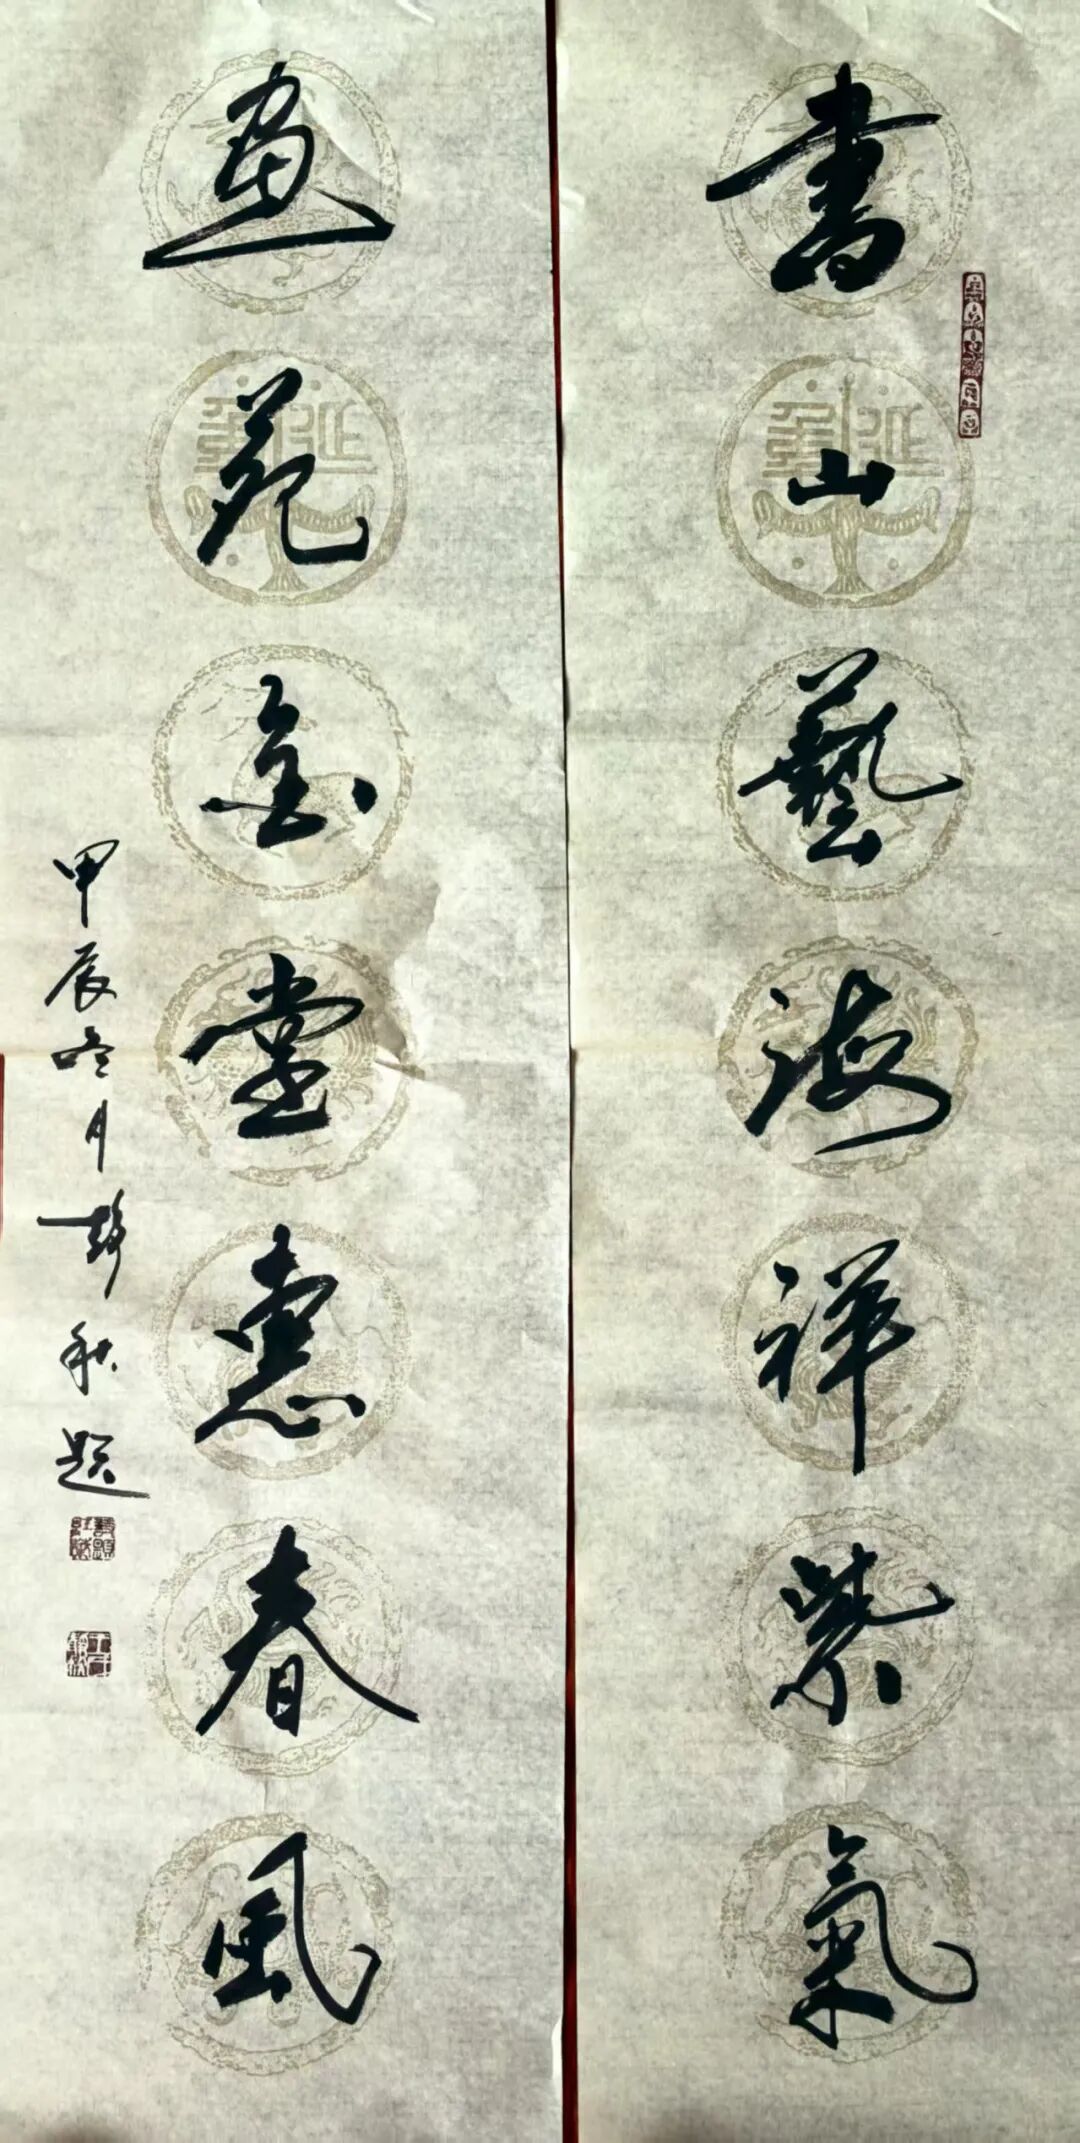 書山藝海祥紫氣
畫苑金堂惠春風
甲辰冬月 秋題